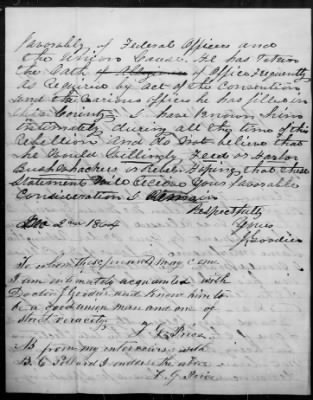 favorably of Federal Officers and
the Union Cause. He has taken
the Oath of Allegiance of Office frequently
as Required by Act of the Convention
and the various offices he has filled in
this County. I have Known him
Intimately during all the time of this
Rebellion and do Not believe that
he would Willingly Feed or Harbor
Bushwhackers or Rebels. Hoping that these
Statement Will Receive Your favorable
Consideration I Remain
Respectfully
Yours
Goodin
Dec 2nd 1864
To whom these presents may come
I am intimately acquainted with
Doctor Goodin and know him to
be a good union man and one of
strict veracity
T G Price
NB from my intercourse with
B. C. Pollard I endorse the above
T. G Price